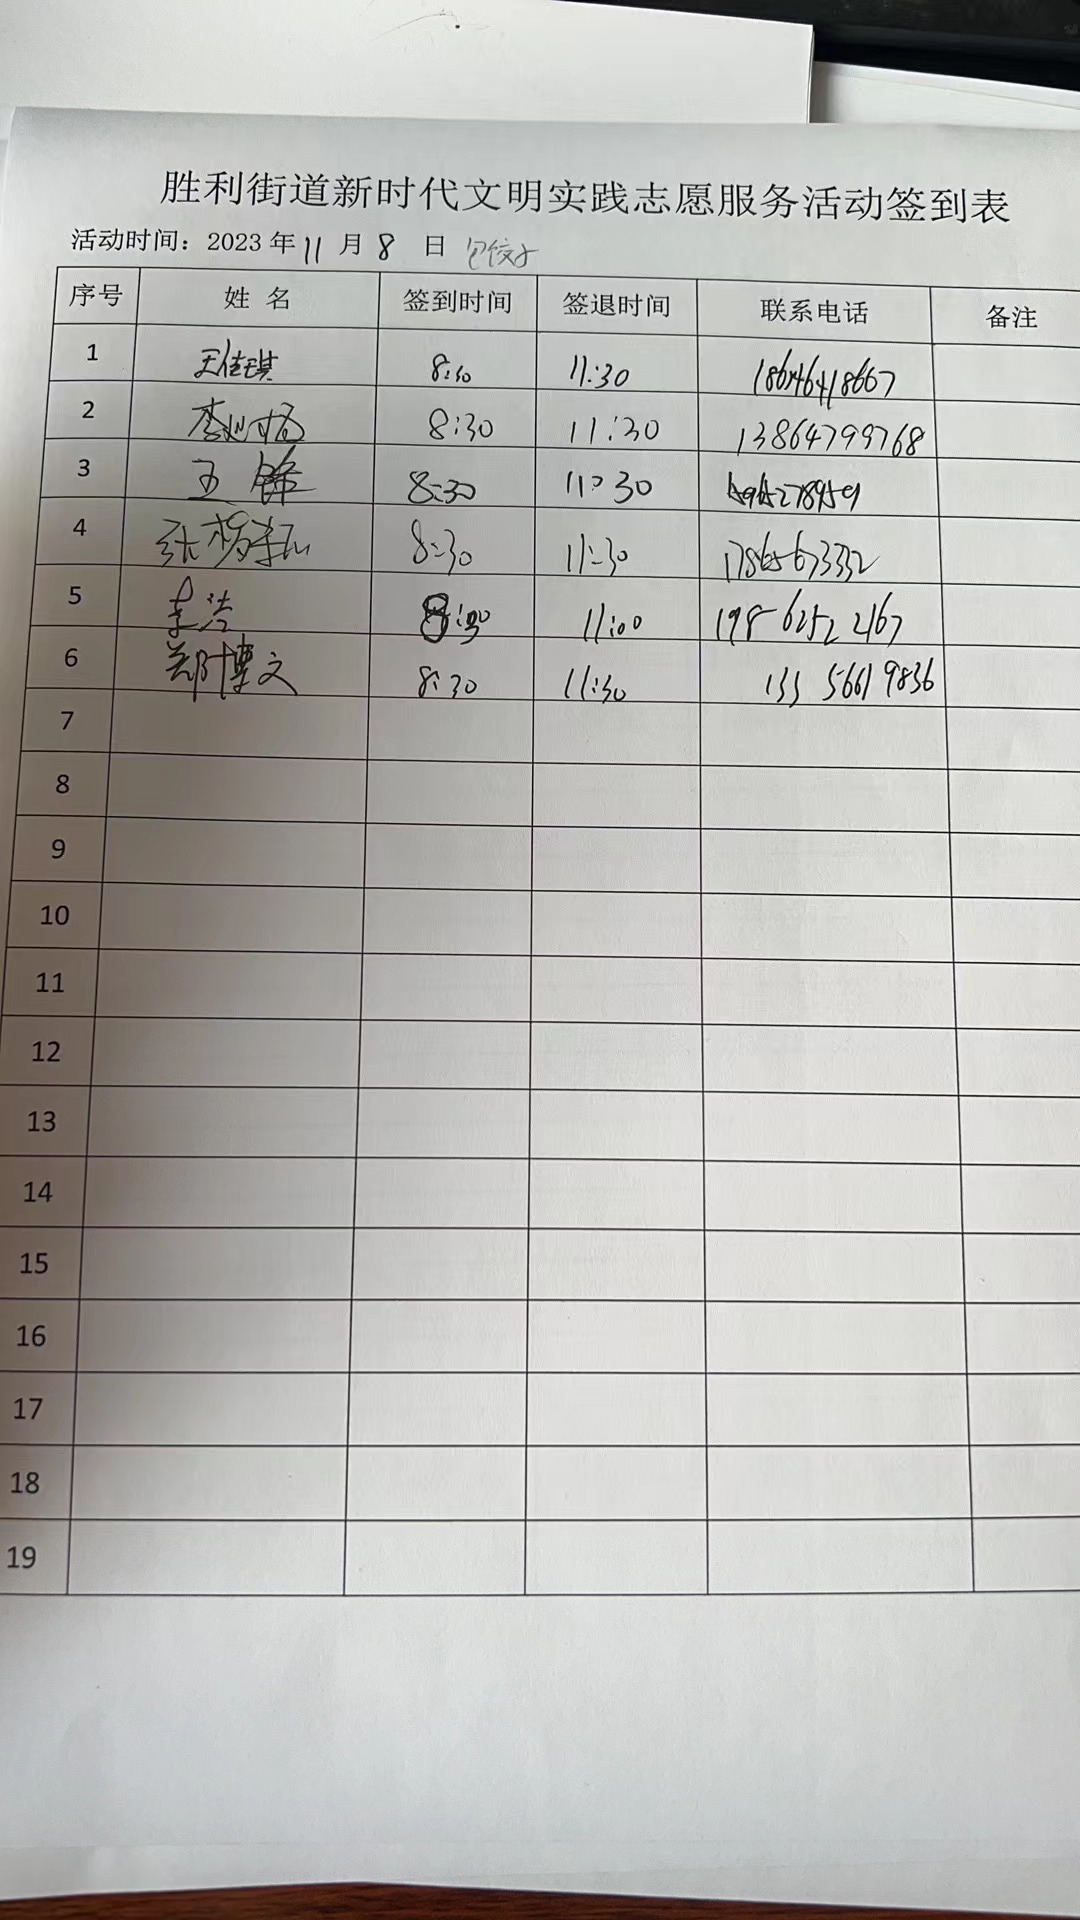 胜利街道新时代文明实践志愿服务活动签到表
活动时间：2023年11月8日 包饺子
序号 姓名 签到时间 签退时间 联系电话 备注
1 王佳琪 8:30 11:30 18646418667
2 李 8:30 11:30 13864799768
3 王锋 8:30 11:30
4 张杨 8:30 11:30 17865673332
5 李浩 8:30 11:00 198 6252 2167
6 郑博文 8:30 11:30 135 5661 9836
7
8
9
10
11
12
13
14
15
16
17
18
19